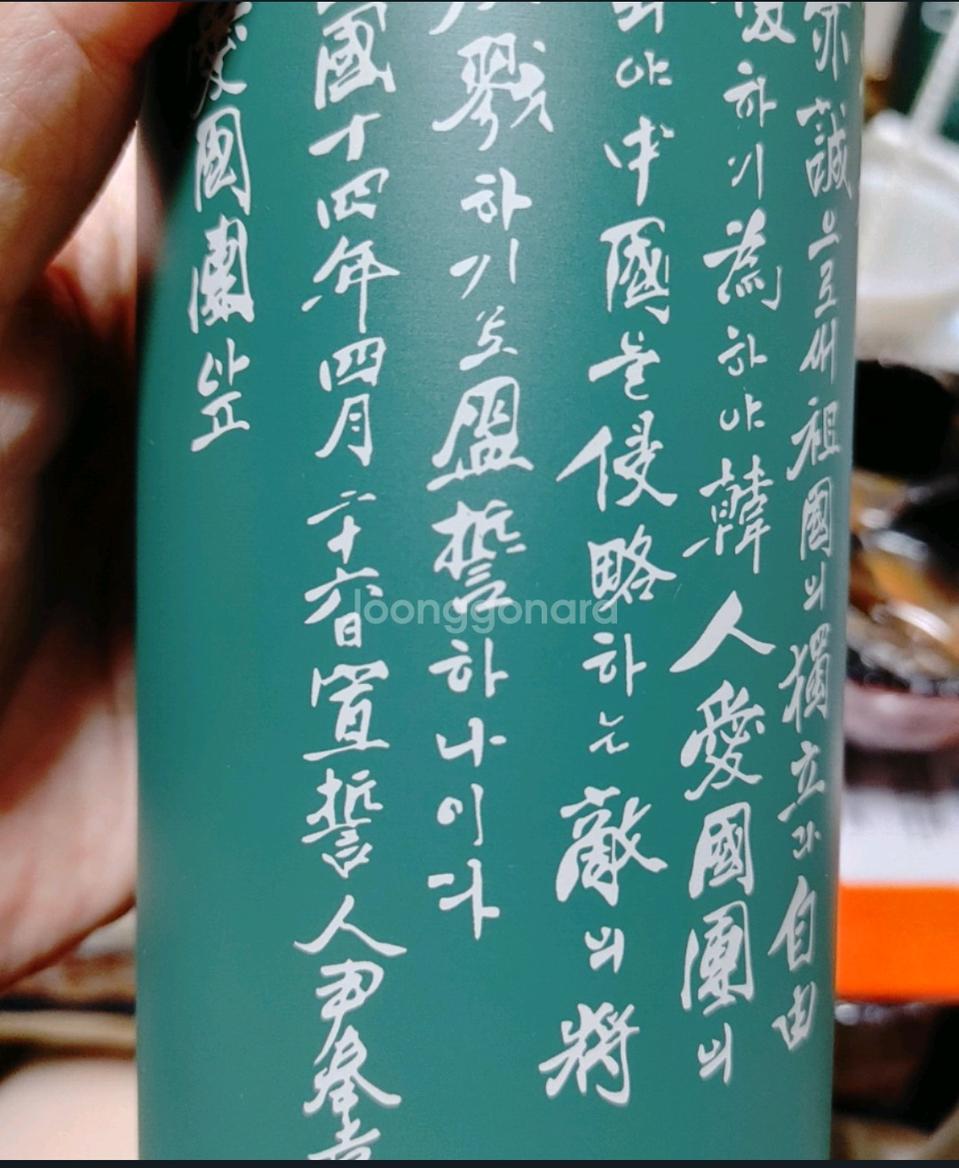 誠으로써祖國의獨立과自由
하기爲하야韓人愛國團의
되야中國을侵略하는敵의將
戮하기로盟誓하나이다
國十四年四月二十六日宣誓人尹奉吉
愛國團앞
loonggonara